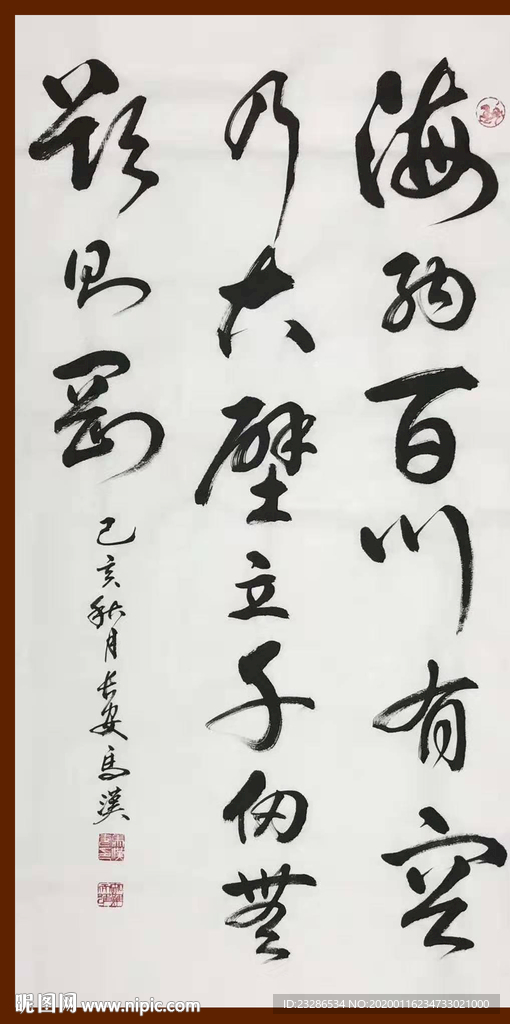 海納百川有容
乃大壁立千仞無
欲則剛
己亥秋月長安馬漢
昵图网 www.nipic.com
ID:23286534 NO:20200116234733021000